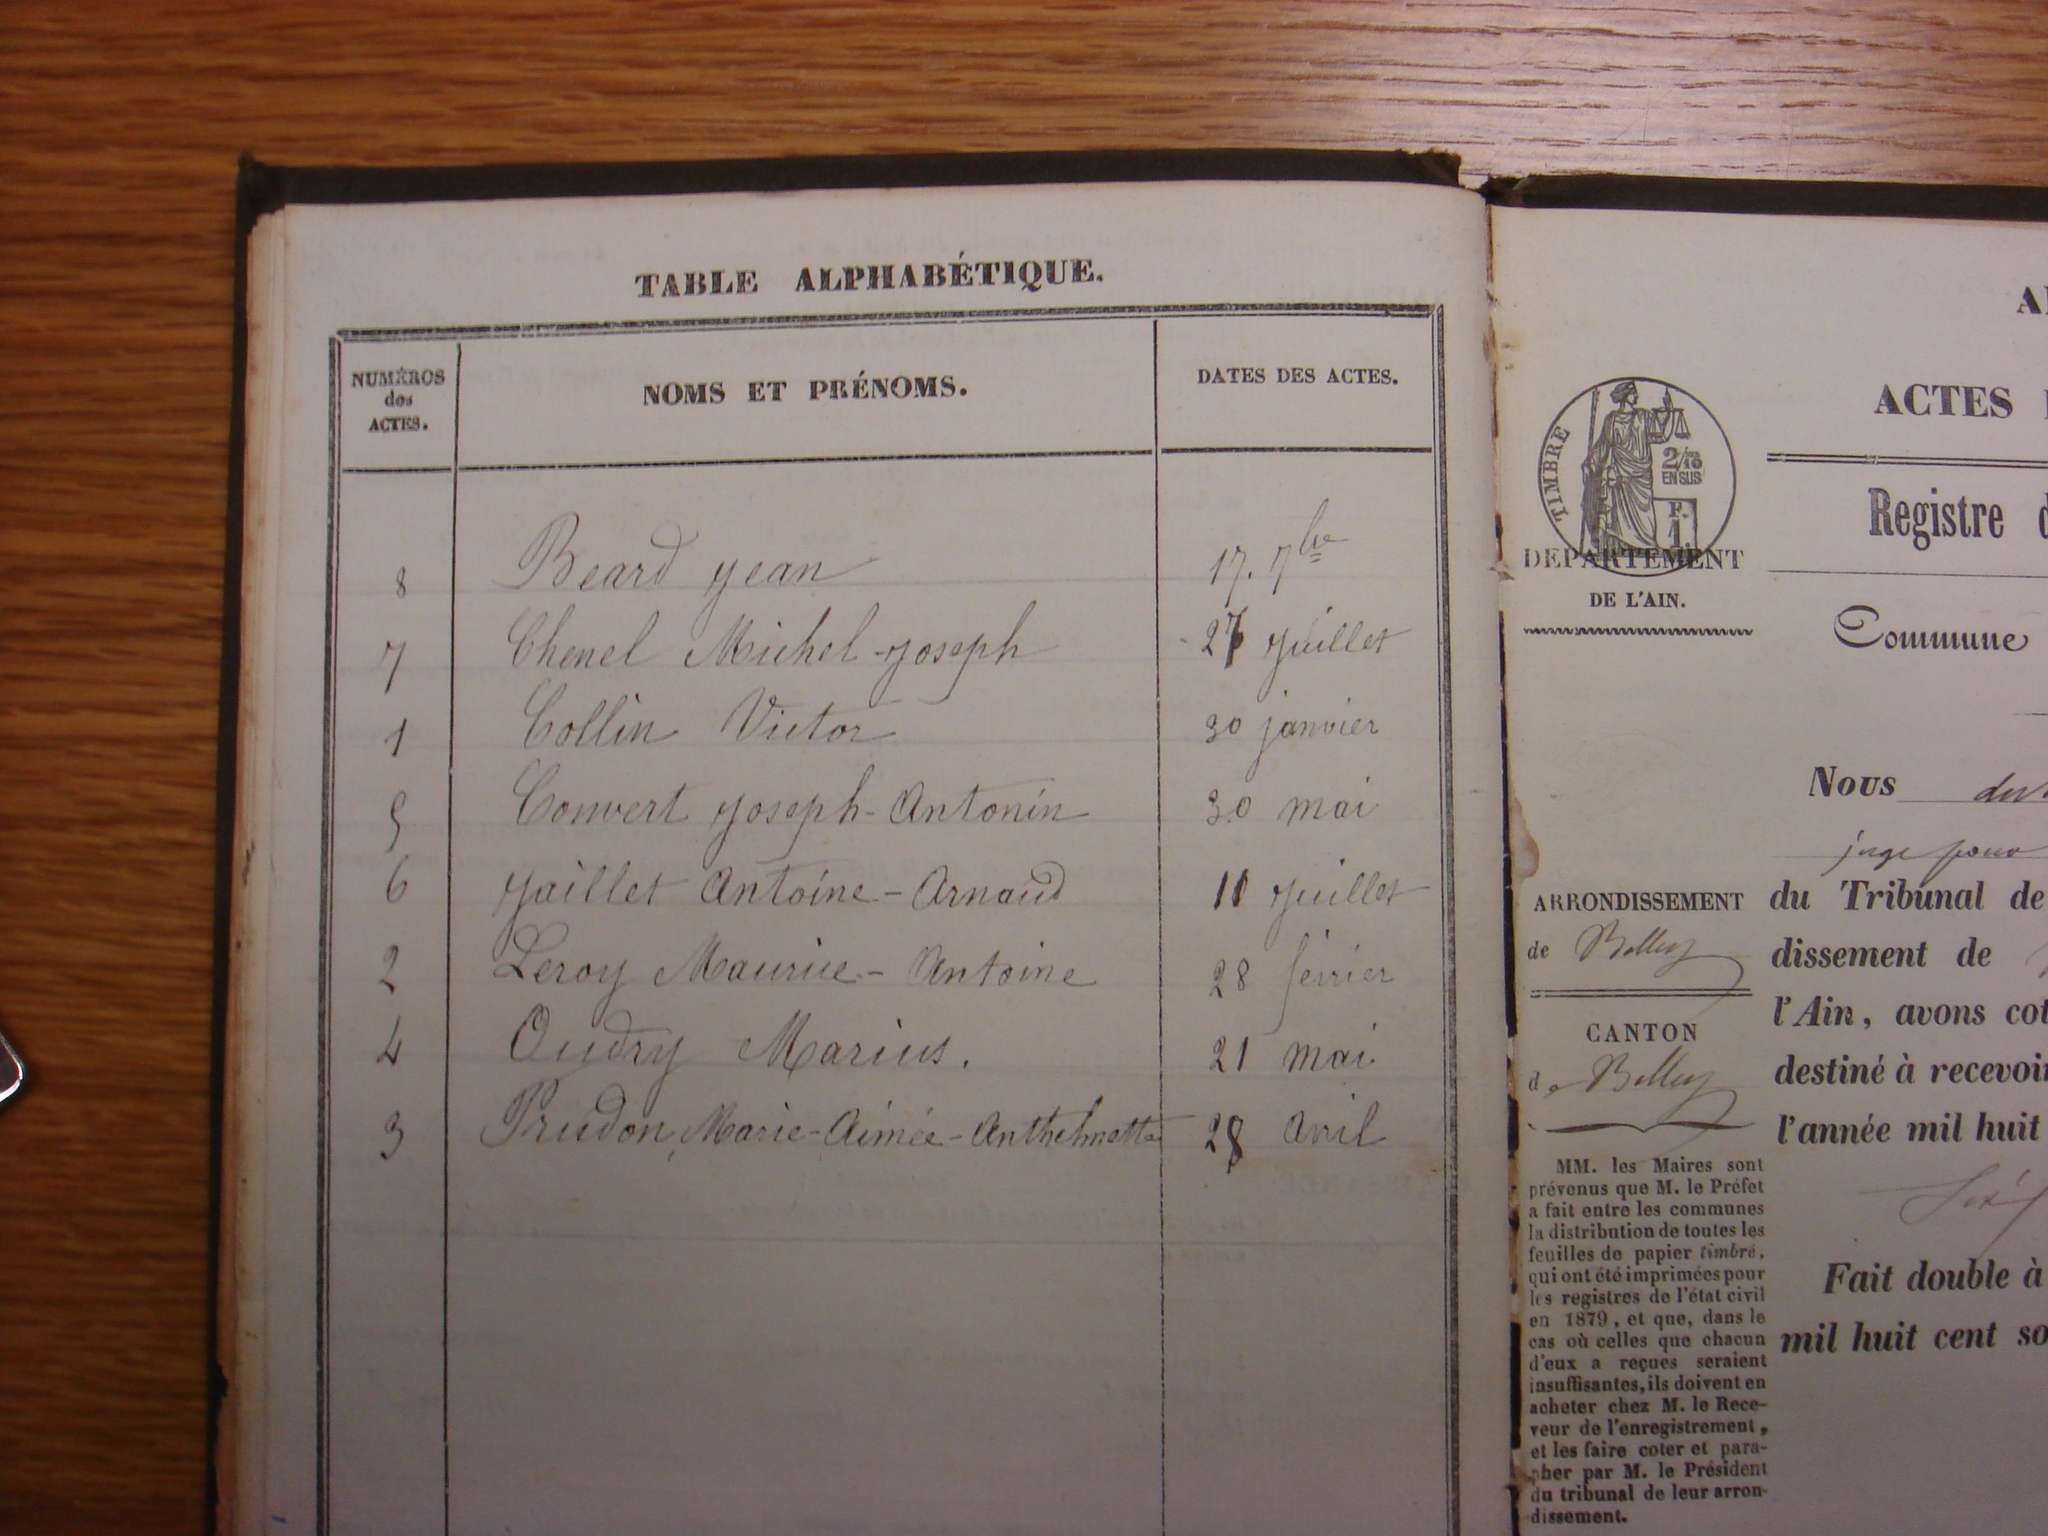 TABLE ALPHABÉTIQUE.
NUMÉROS
des
ACTES.
NOMS ET PRÉNOMS.
DATES DES ACTES.
8 Beard Jean 17. 7bre
7 Chenel Michel-Joseph 27 Juillet
1 Collin Victor 30 janvier
5 Convert Joseph-Antonin 30 mai
6 Jaillet Antoine-Arnaud 11 Juillet
2 Leroy Maurice-Antoine 28 février
4 Oudry Marius. 21 mai
3 Prudon, Marie-Aimée-Anthelmette 28 Avril
ACTES
TIMBRE
2/10
EN SUS
F.
1
DEPARTEMENT
DE L'AIN.
Registre d
Commune
Nous
juge pour
ARRONDISSEMENT
de Belley
CANTON
de Belley
MM. les Maires sont
prévenus que M. le Préfet
a fait entre les communes
la distribution de toutes les
feuilles de papier timbré,
qui ont été imprimées pour
les registres de l'état civil
en 1879, et que, dans le
cas où celles que chacun
d'eux a reçues seraient
insuffisantes, ils doivent en
acheter chez M. le Rece-
veur de l'enregistrement,
et les faire coter et para-
pher par M. le Président
du tribunal de leur arron-
dissement.
du Tribunal de
dissement de
l'Ain, avons cot
destiné à recevoir
l'année mil huit
Fait double à
mil huit cent so